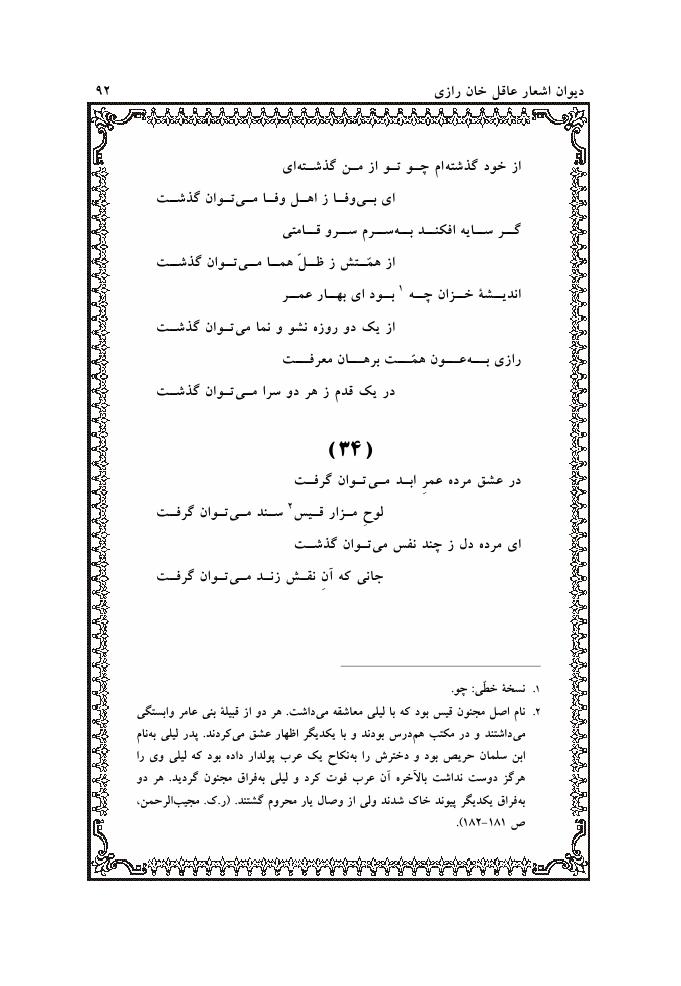 دیوان اشعار عاقل خان رازی ۹۲
از خود گذشته‌ام چـو تـو از مـن گذشـته‌ای
ای بـی‌وفـا ز اهـل وفـا مـی‌تـوان گذشـت
گـر سـایه افکنـد بـه‌سـرم سـرو قـامتی
از همّـتش ز ظـلّ همـا مـی‌تـوان گذشـت
اندیـشهٔ خـزان چـه ۱ بـود ای بهـار عمـر
از یک دو روزه نشو و نما می‌توان گذشـت
رازی بـه‌عـون همّـت برهـان معرفـت
در یک قدم ز هر دو سرا مـی‌تـوان گذشـت
(۳۴)
در عشق مرده عمرِ ابـد مـی‌تـوان گرفـت
لوحِ مـزار قـیس۲ سـند مـی‌تـوان گرفـت
ای مرده دل ز چند نفس می‌توان گذشـت
جانی که آنِ نقـش زنـد مـی‌تـوان گرفـت
۱. نسخهٔ خطّی: چو.
۲. نام اصل مجنون قیس بود که با لیلی معاشقه می‌داشت. هر دو از قبیلهٔ بنی عامر وابستگی
می‌داشتند و در مکتب هم‌درس بودند و با یکدیگر اظهار عشق می‌کردند. پدر لیلی به‌نام
ابن سلمان حریص بود و دخترش را به‌نکاح یک عرب پولدار داده بود که لیلی وی را
هرگز دوست نداشت بالآخره آن عرب فوت کرد و لیلی به‌فراق مجنون گردید. هر دو
به‌فراق یکدیگر پیوند خاک شدند ولی از وصال یار محروم گشتند. (ر.ک. مجیب‌الرحمن،
ص ۱۸۱-۱۸۲).